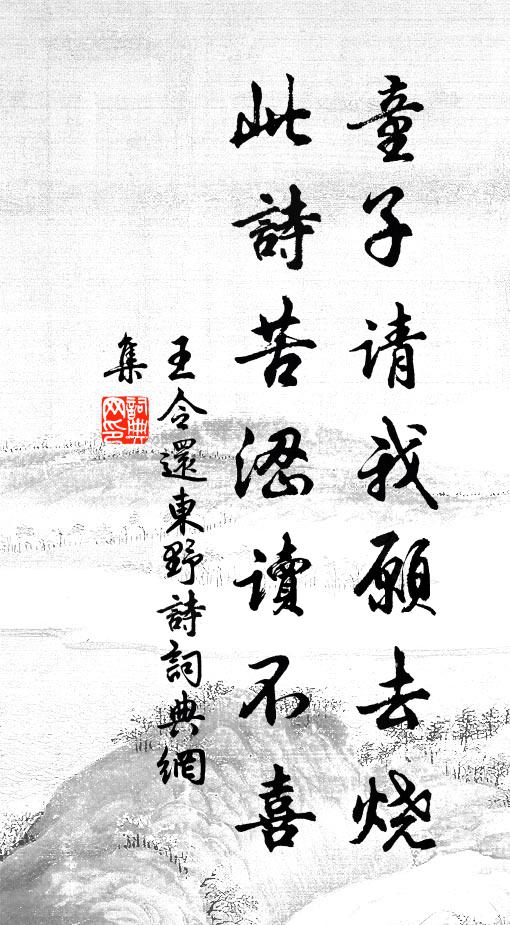 童子请我願去烧
此詩苦澀读不喜
王令還東野詩詞典網
集
詞典網印